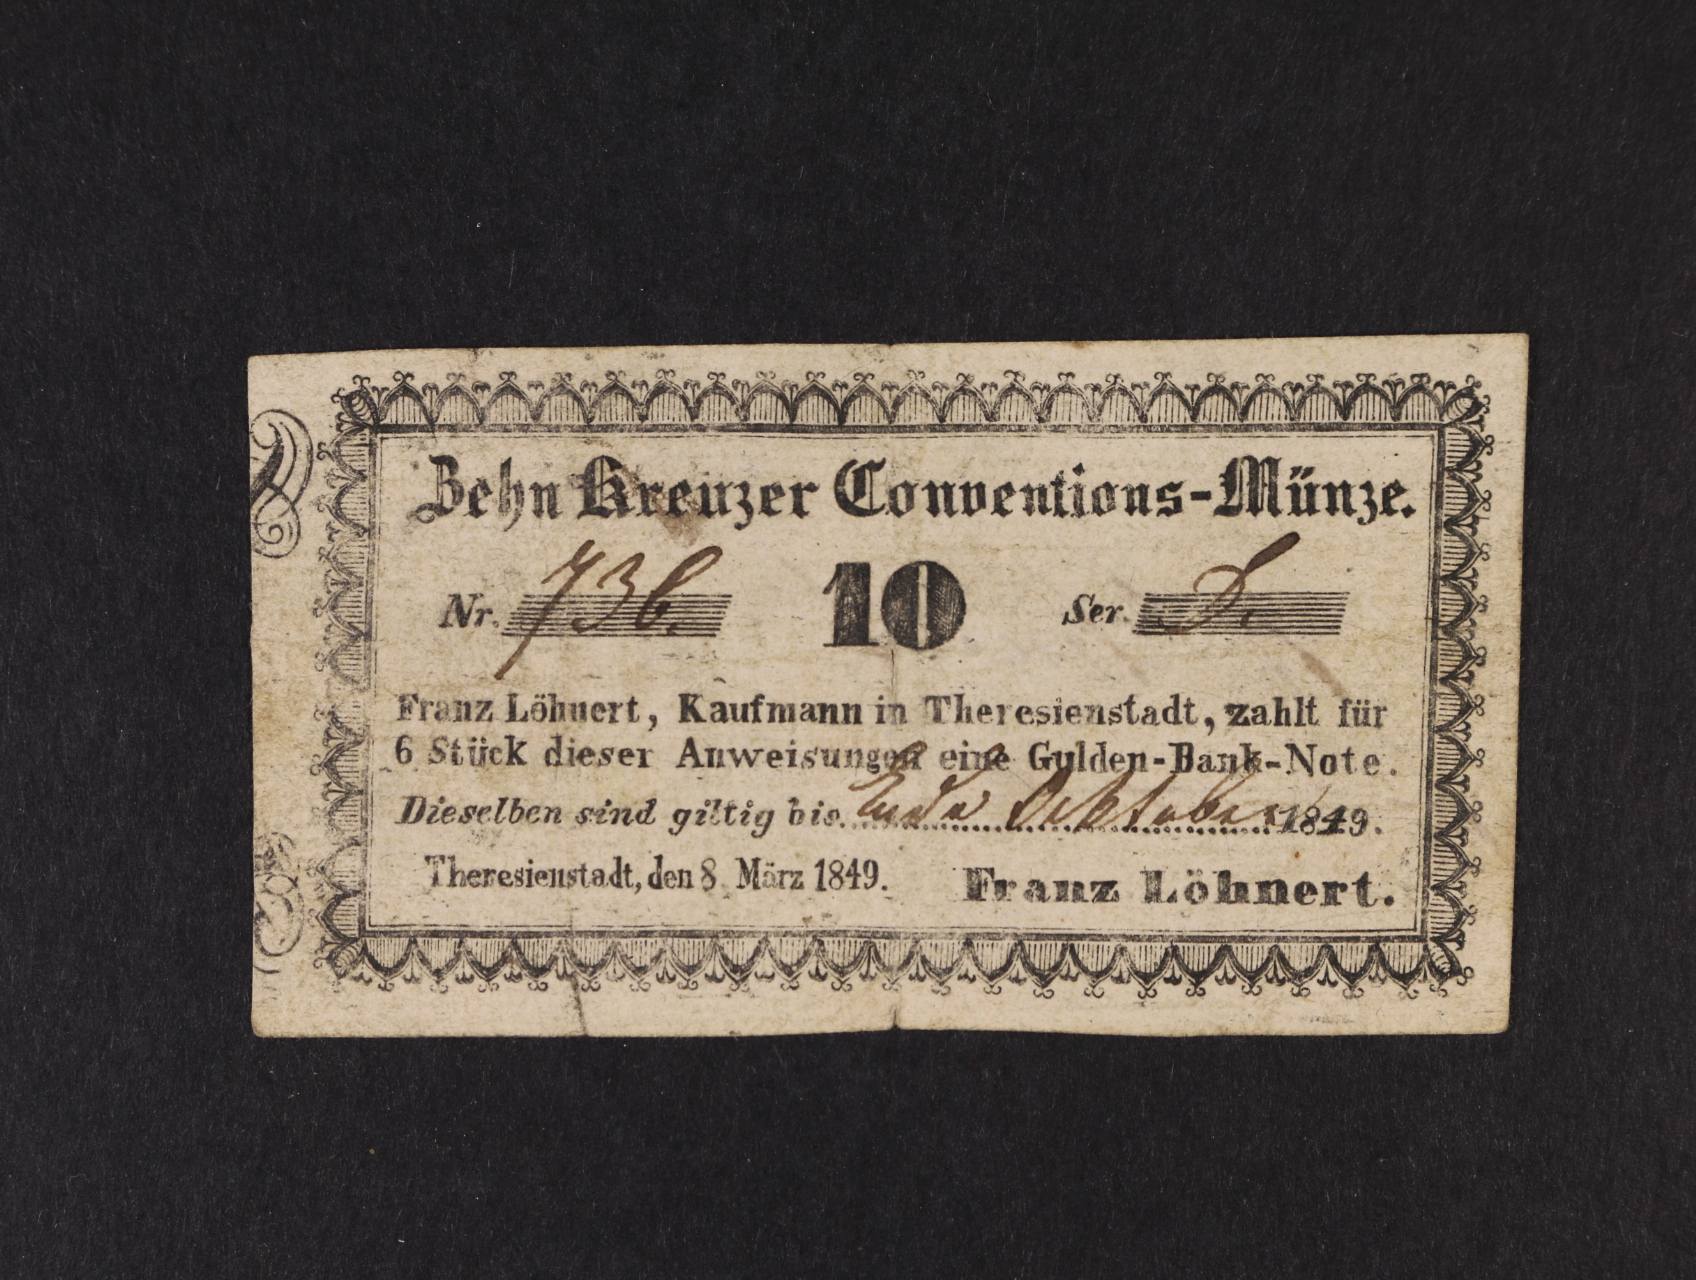 Zehn Kreuzer Conventions-Münze.
Nr. 736. 10 Ser. D.
Franz Löhnert, Kaufmann in Theresienstadt, zahlt für
6 Stück dieser Anweisungen eine Gulden-Bank-Note.
Dieselben sind giltig bis Ende Oktober 1849.
Theresienstadt, den 8 März 1849. Franz Löhnert.